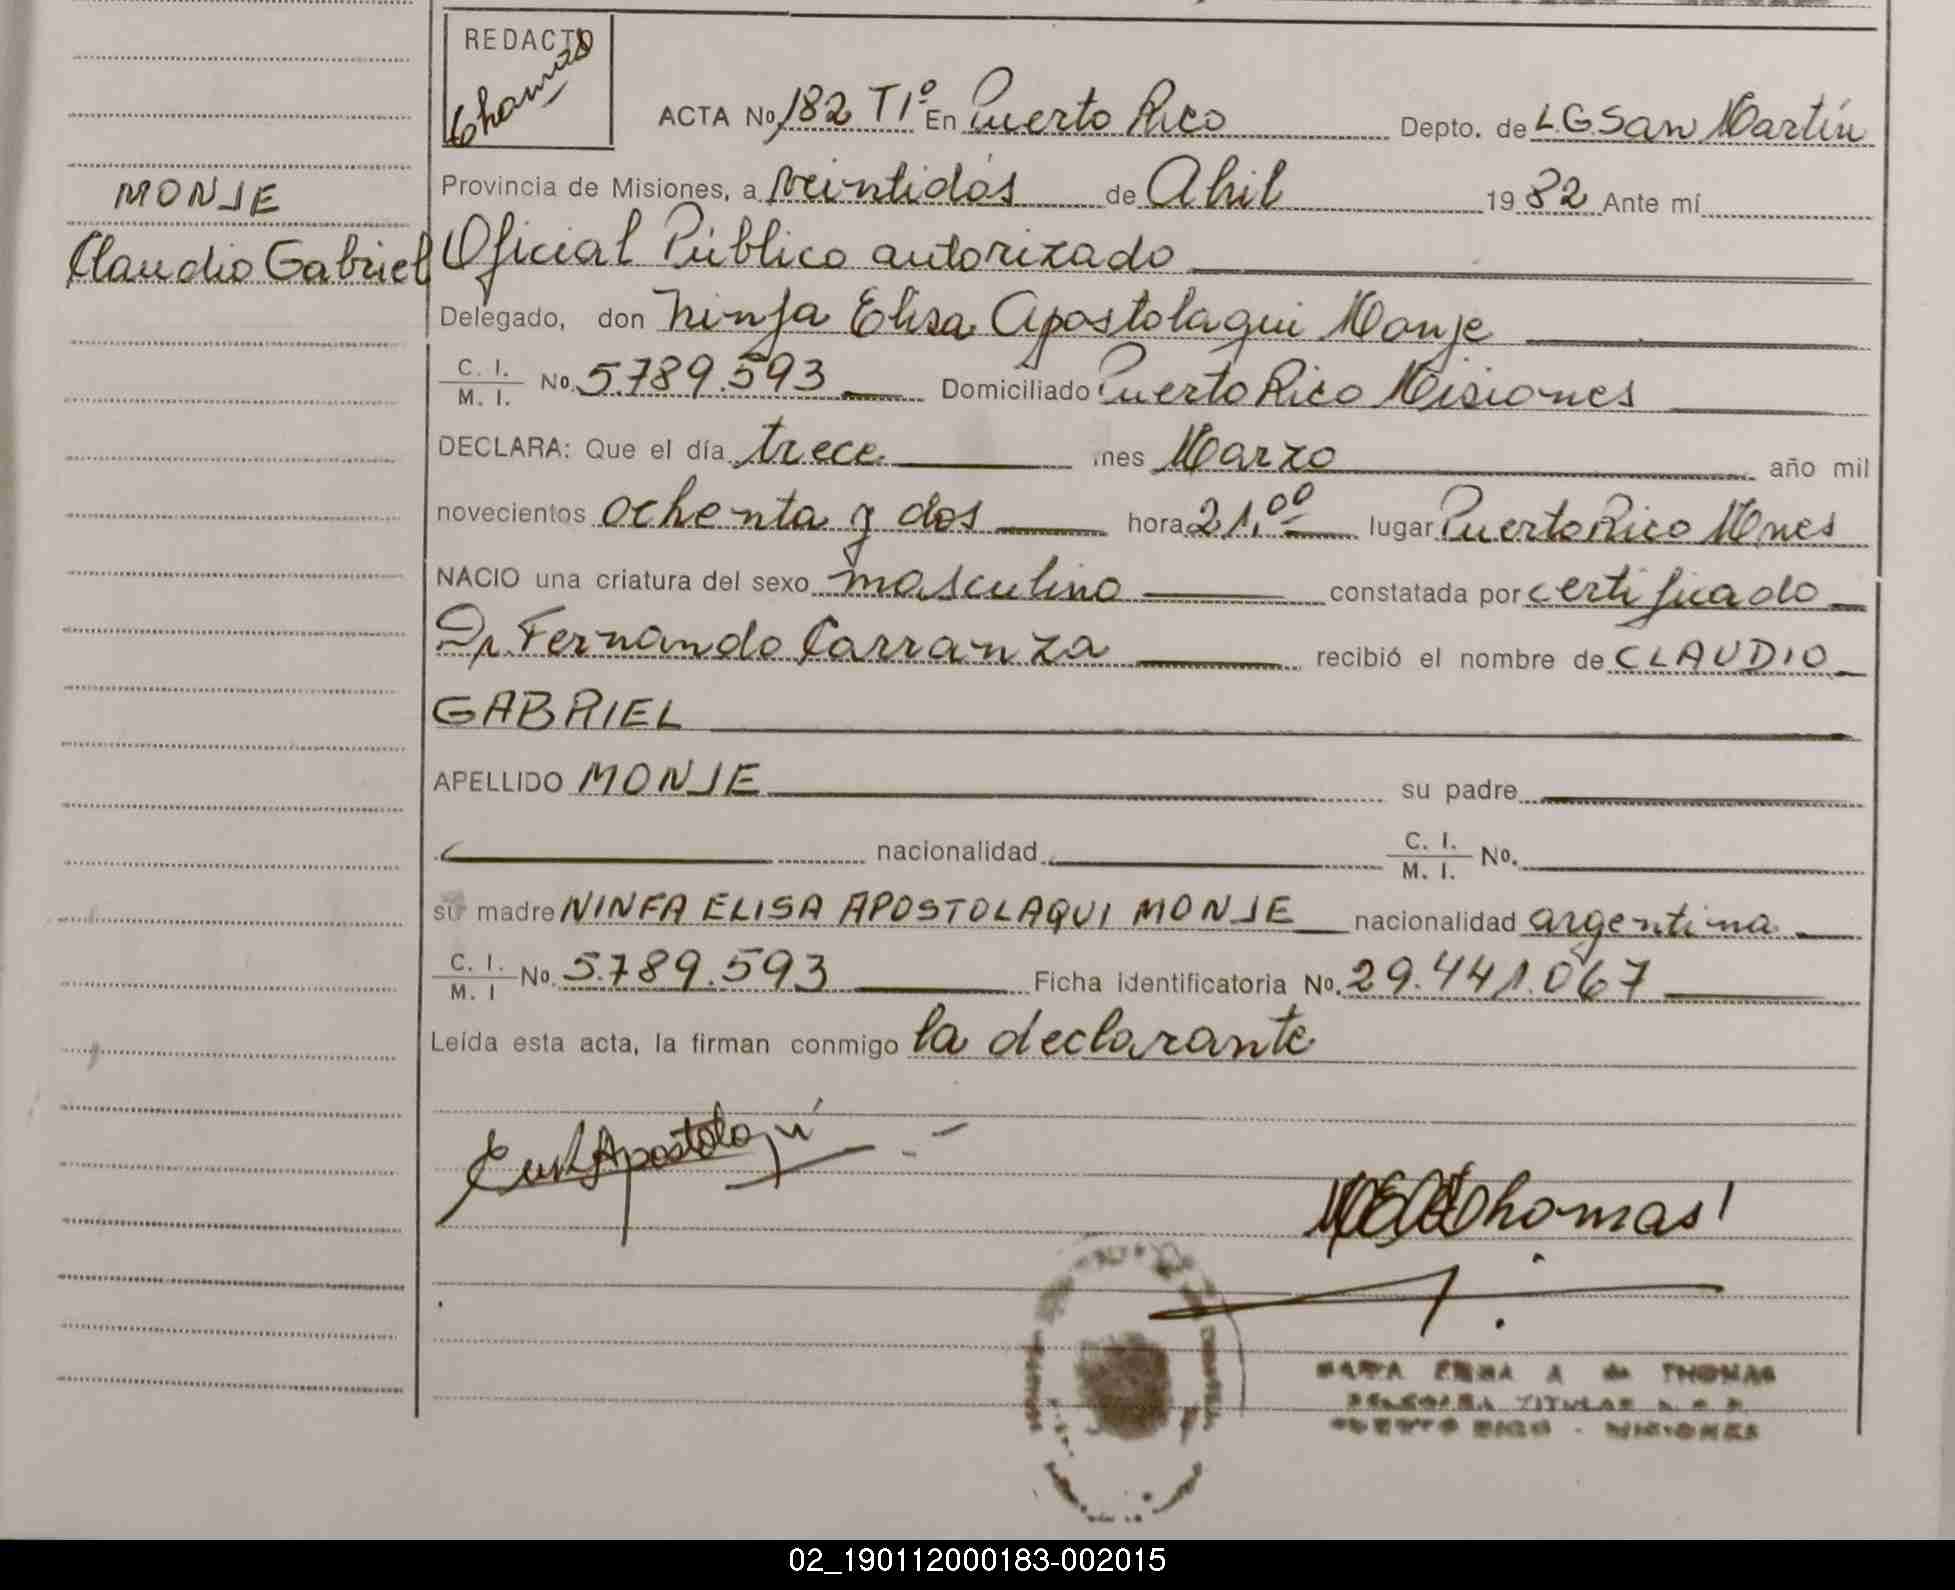 REDACTO
Thomas
ACTA No 182 T1º En Puerto Rico Depto. de L.G.San Martín
MONJE
Provincia de Misiones, a veintidós de Abril 1982 Ante mí
Claudio Gabriel
Oficial Público autorizado
Delegado, don Ninfa Elisa Apostolaqui Monje
C. I. / M. I. No. 5.789.593 Domiciliado Puerto Rico Misiones
DECLARA: Que el día trece mes Marzo año mil
novecientos ochenta y dos hora 21,00 lugar Puerto Rico Mnes
NACIO una criatura del sexo masculino constatada por certificado
Dr. Fernando Carranza recibió el nombre de CLAUDIO
GABRIEL
APELLIDO MONJE su padre
nacionalidad C. I. / M. I. No.
su madre NINFA ELISA APOSTOLAQUI MONJE nacionalidad argentina
C. I. / M. I No. 5.789.593 Ficha identificatoria No. 29.441.067
Leída esta acta, la firman conmigo la declarante
Apostolaqui
Thomas
THOMAS
TITULAR
PUERTO RICO - MISIONES
02_190112000183-002015